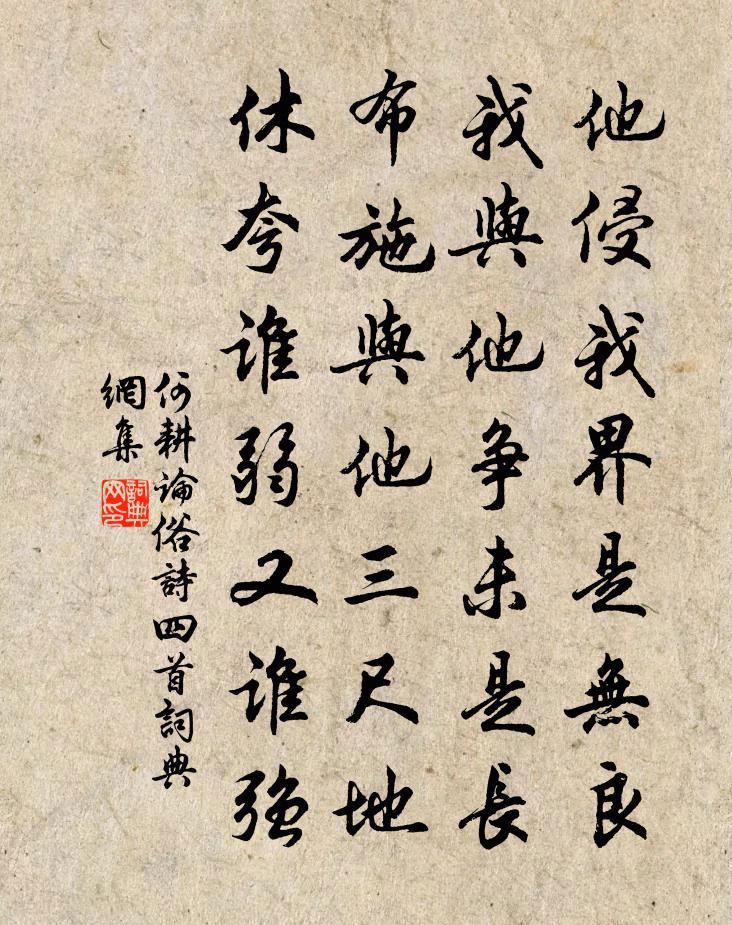 他侵我界是無良
我與他争未是長
布施與他三尺地
休夸誰弱又誰強
何耕論俗詩四首詞典
網集
詞典
网印